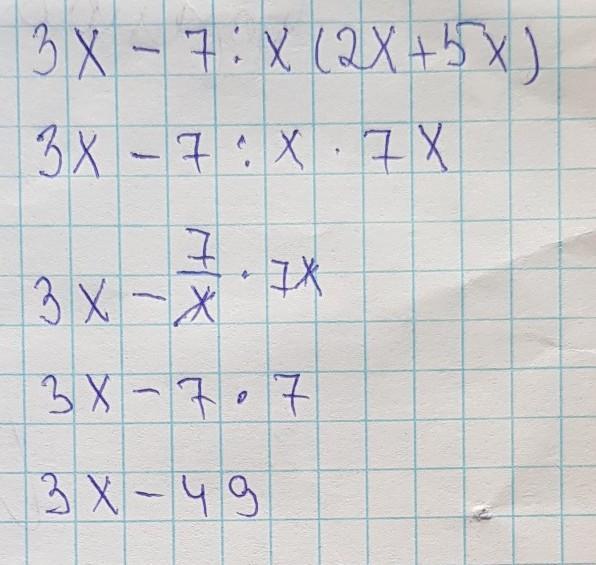 3x - 7 : x (2x + 5x)
3x - 7 : x · 7x
3x - 7/x · 7x
3x - 7 · 7
3x - 49